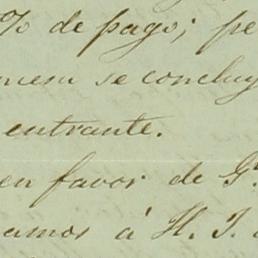 % de pago; pe
se concluy
entrante.
en favor de G.
amos á H. J.